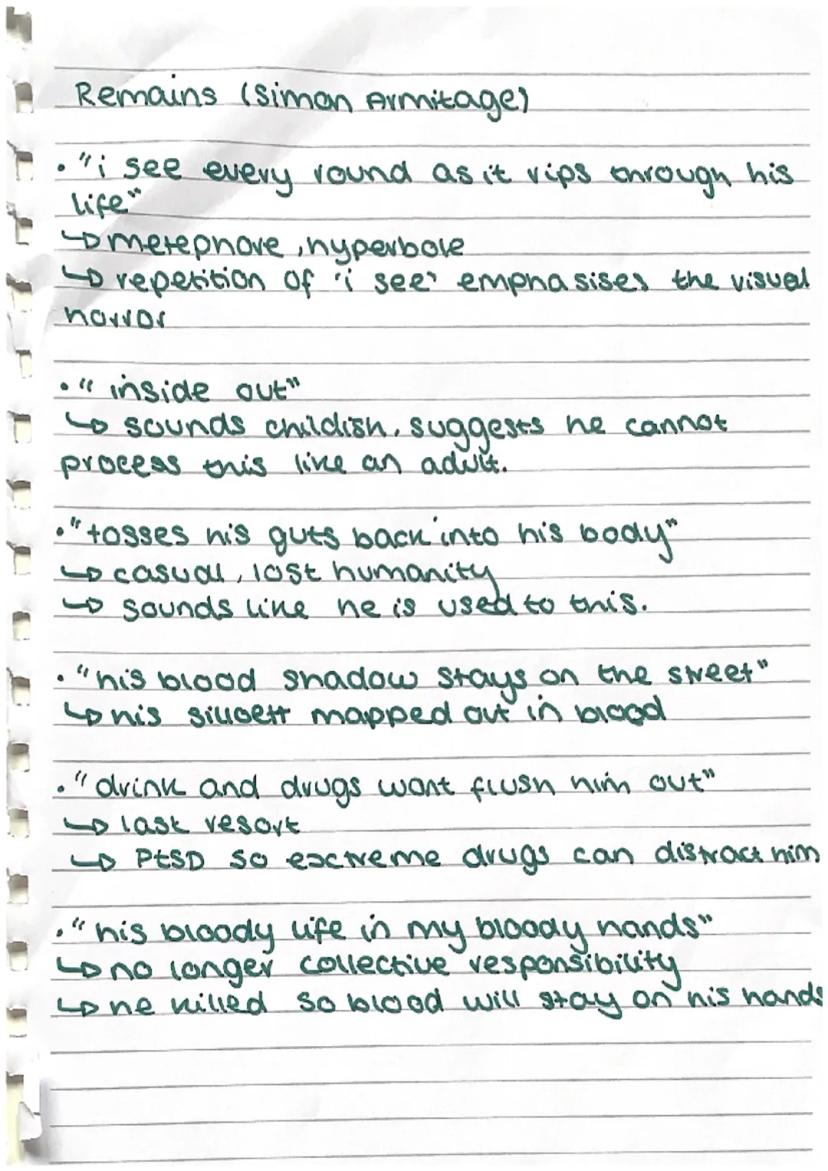 Remains (Simon Armitage)
• "i see every round as it rips through his
life"
↳ metephore, hyperbole
↳ repetition of 'i see' emphasises the visual
horror
• " inside out"
↳ sounds childish, suggests he cannot
process this like an adult.
• "tosses his guts back into his body"
↳ casual, lost humanity
↳ sounds like he is used to this.
• "his blood shadow stays on the street"
↳ his silloett mapped out in blood
• "drink and drugs wont flush him out"
↳ last resort
↳ PTSD so exctreme drugs can distract him
• "his bloody life in my bloody hands"
↳ no longer collective responsibility
↳ he killed so blood will stay on his hands